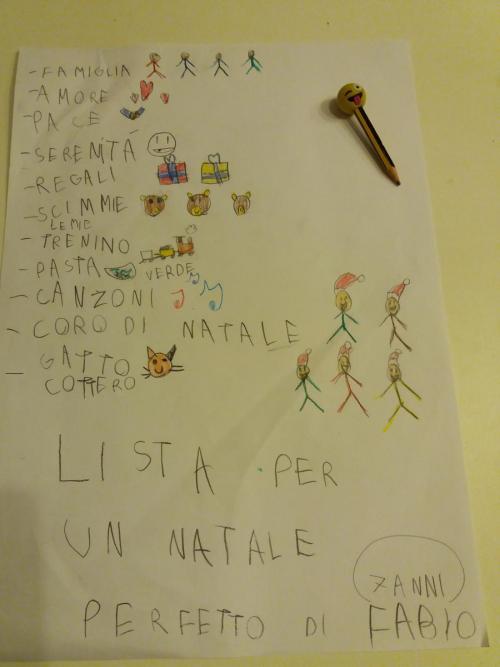 - FAMIGLIA
- AMORE
- PACE
- SERENITÁ
- REGALI
- SCIMMIE
LE MIE
- TRENINO
- PASTA VERDE
- CANZONI
- CORO DI NATALE
- GATTO
COTTERO
LISTA PER
UN NATALE
7 ANNI
PERFETTO DI FABIO